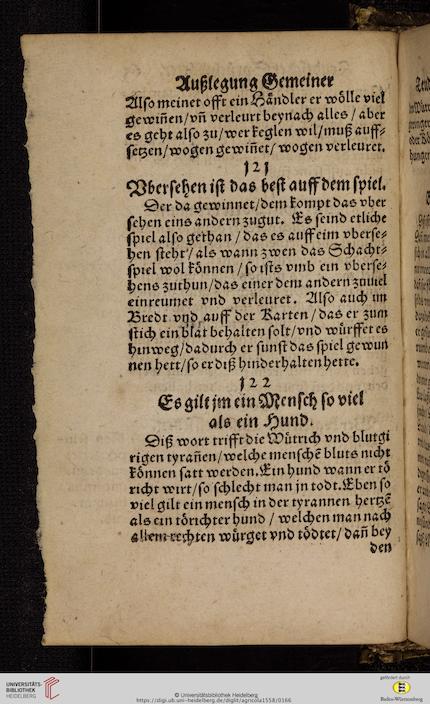 Außlegung Gemeiner
Also meinet offt ein Händler er wölle viel
gewiñen/vñ verleurt beynach alles / aber
es geht also zu/wer keglen wil/muß auff-
setzen/wogen gewiñet/ wogen verleuret.
121
Vbersehen ist das best auff dem spiel.
Der da gewinnet/dem kompt das vber
sehen eins andern zugut. Es seind etliche
spiel also gethan / das es auff eim vberse-
hen steht/ als wann zwen das Schacht-
spiel wol können / so ists vmb ein vberse-
hens zuthun/das einer dem andern zuuiel
einreumet vnd verleuret. Also auch im
Bredt vnd auff der Karten/das er zum
stich ein blat behalten solt/vnd würffet es
hinweg/dadurch er sunst das spiel gewun
nen hett/so er diß hinderhalten hette.
122
Es gilt jm ein Mensch so viel
als ein Hund.
Diß wort trifft die Wütrich vnd blutgi
rigen tyrañen/welche menschẽ bluts nicht
können satt werden. Ein hund wann er tö
richt wirt/so schlecht man jn todt. Eben so
viel gilt ein mensch in der tyrannen hertzẽ
als ein törichter hund / welchen man nach
allem rechten würget vnd tödtet/ dañ bey
den
UNIVERSITÄTS-
BIBLIOTHEK
HEIDELBERG
© Universitätsbibliothek Heidelberg
https://digi.ub.uni-heidelberg.de/diglit/agricola1558/0166
gefördert durch
Baden-Württemberg